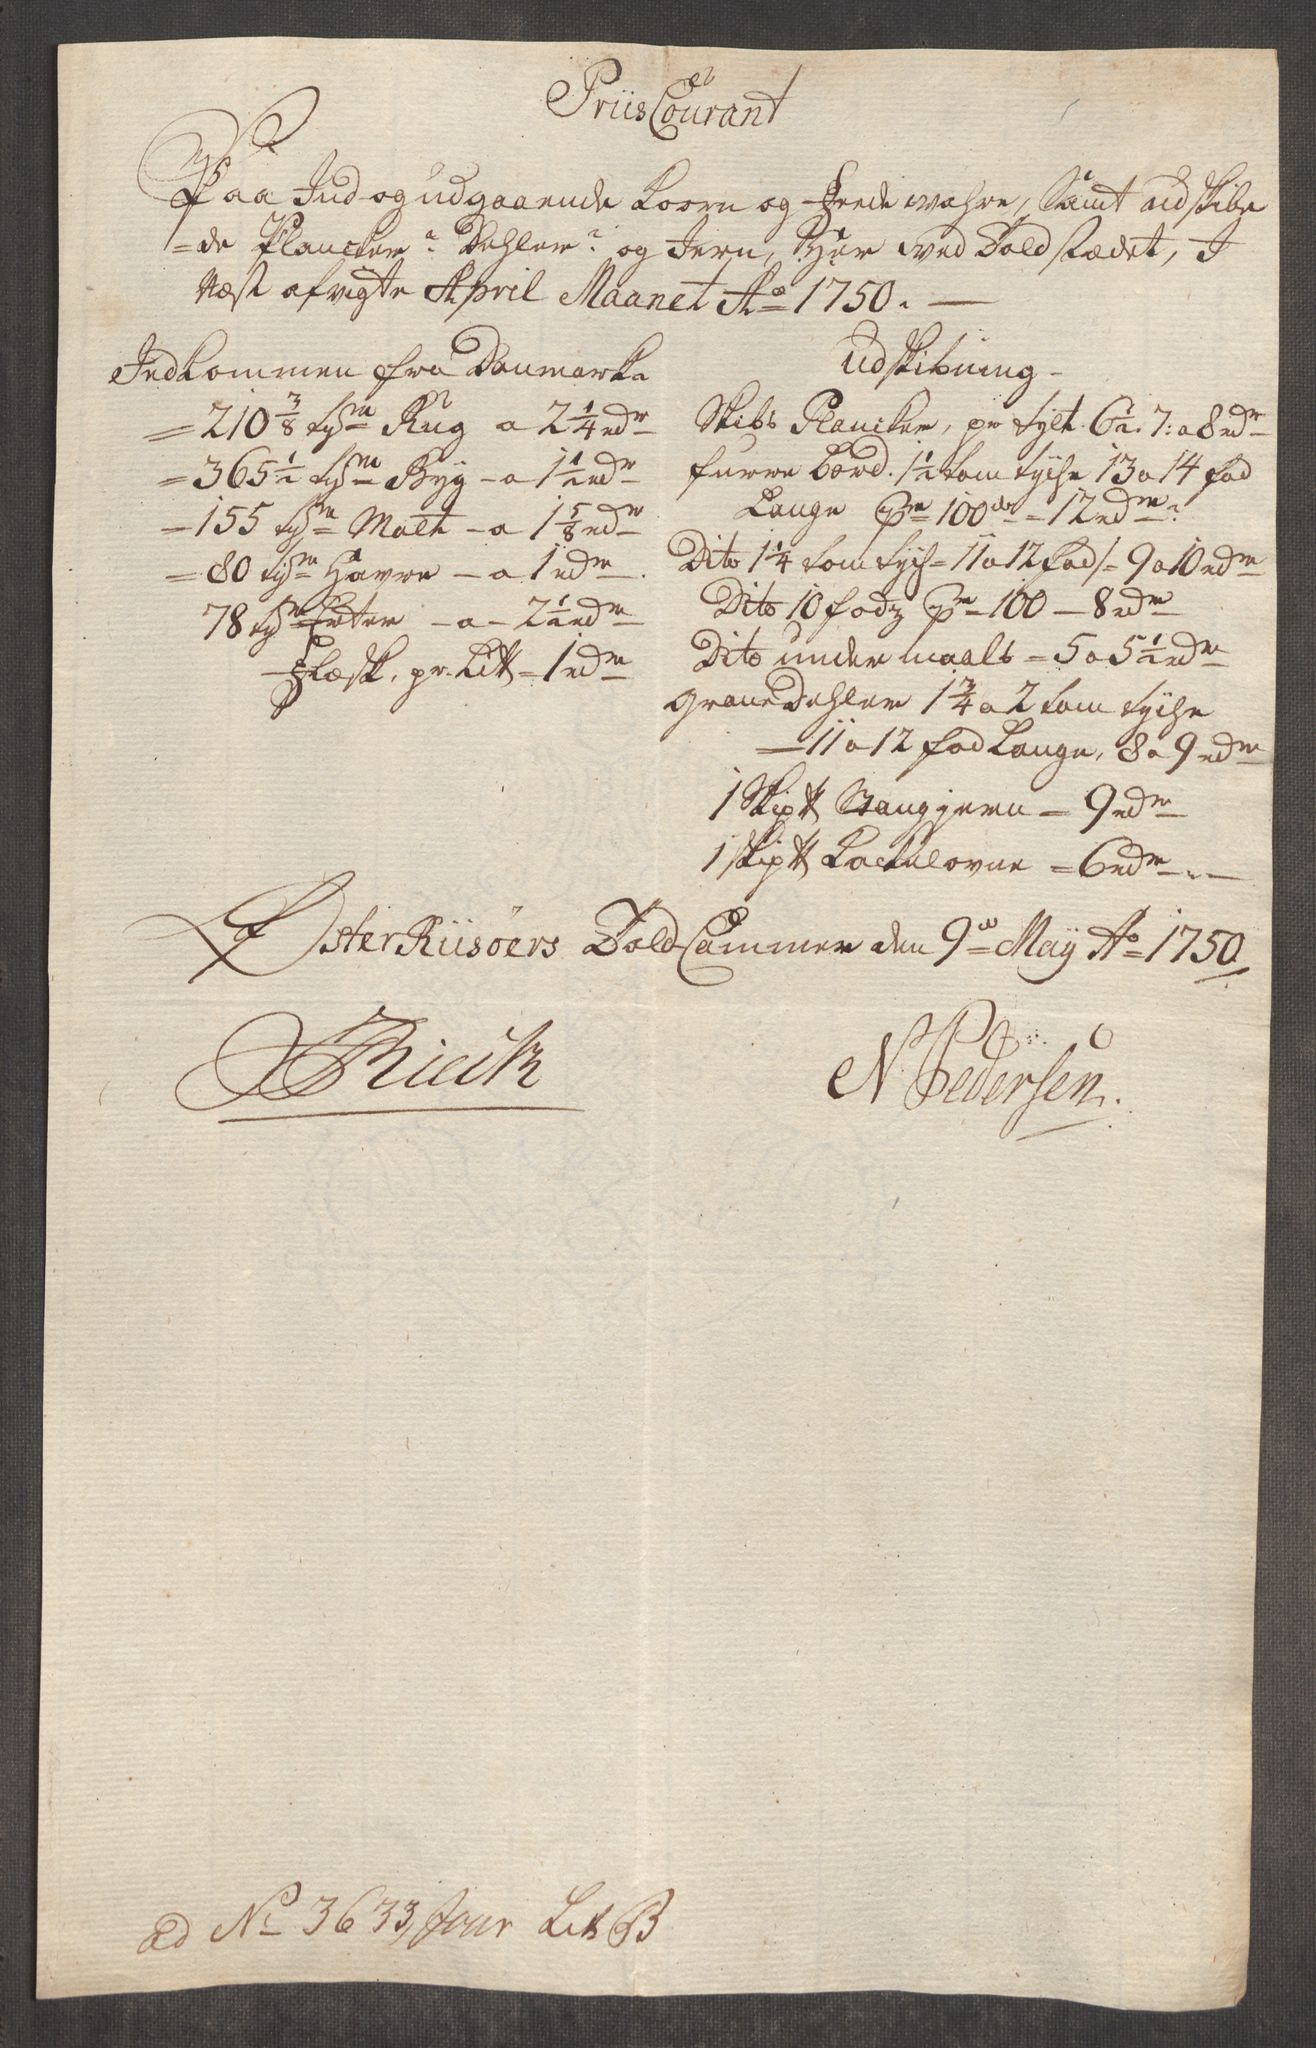 Priis Courant
Paa Ind- og udgaaende Koorn og Feede wahre, Samt udskibe
=de Plancker, Dehler, og Jern, Her ved Toldstædet, I
Næst afvigte April Maanet Ao 1750.
Indkommen fra Danmark
=210 3/8 tr Rug a 2 1/4 rdr
=365 1/2 tr Byg - a 1 1/2 rdr
=155 tr Malt - a 1 5/8 rdr
=80 tr Havre - a 1 rdr
78 tr Erter - a - 2 1/2 rdr
Flæsk, pr. Lit℔ = 1 rdr
Udskibning
Skibs Plancker, pr tylt. 6 1/2. 7: a 8 rdr
furre bord. 1 1/2 tom tycke 13 a 14 fod
Lange pr 100de = 12 rdr
Dito 1 1/4 tom tyck = 11 a 12 fod = 9 a 10 rdr
Dito 10 fods pr 100 - 8 rdr
Dito under maals = 5 a 5 1/2 rdr
Grane Dehler 1 3/4 a 2 tom tycke
- 11 a 12 fod Lange, 8 a 9 rdr
1 Skip℔ Stangjern = 9 rdr
1 Skip℔ Kackelovne = 6 rdr
Øster Riisøers Told Cammer den 9de Maÿ Ao 1750
N Pedersen.
ad No 3633 Jour Litt B